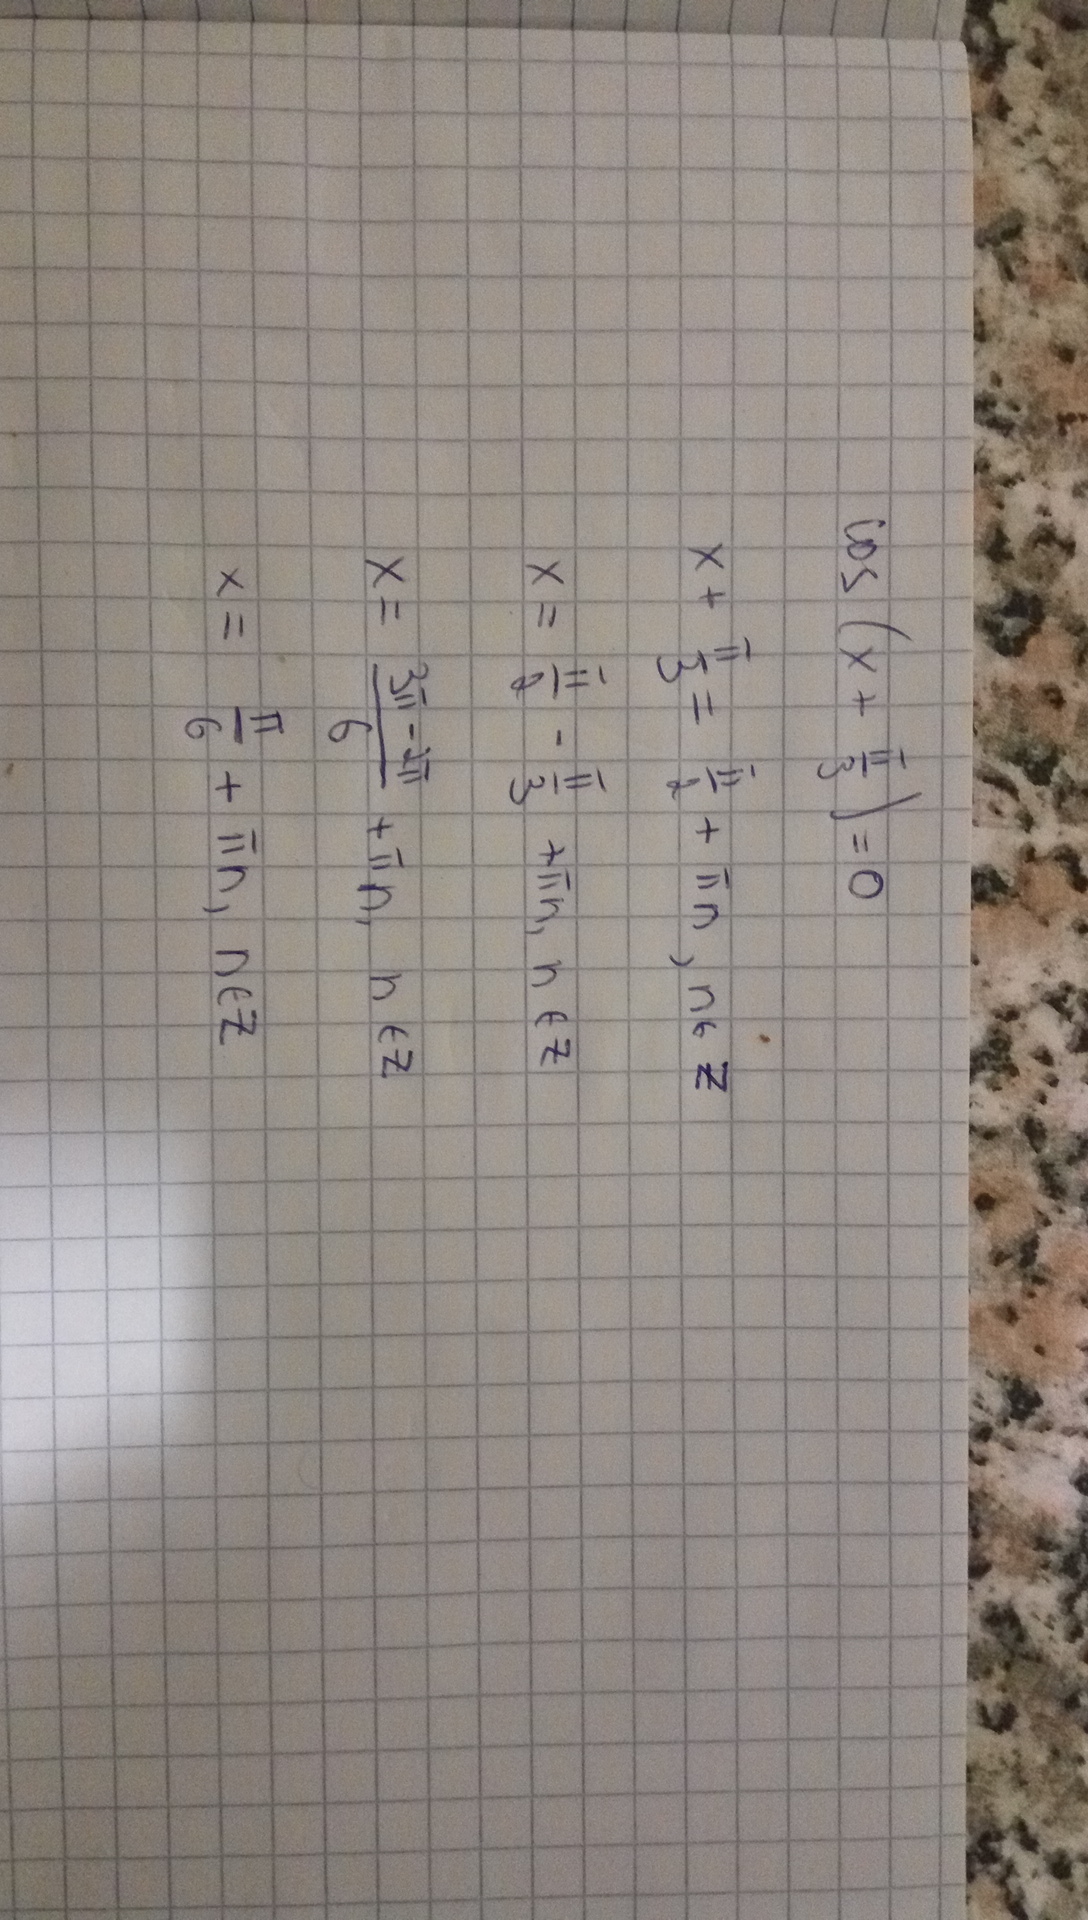 cos(x + π/3) = 0
x + π/3 = π/2 + πn, n ∈ Z
x = π/2 - π/3 + πn, n ∈ Z
x = (3π - 2π)/6 + πn, n ∈ Z
x = π/6 + πn, n ∈ Z